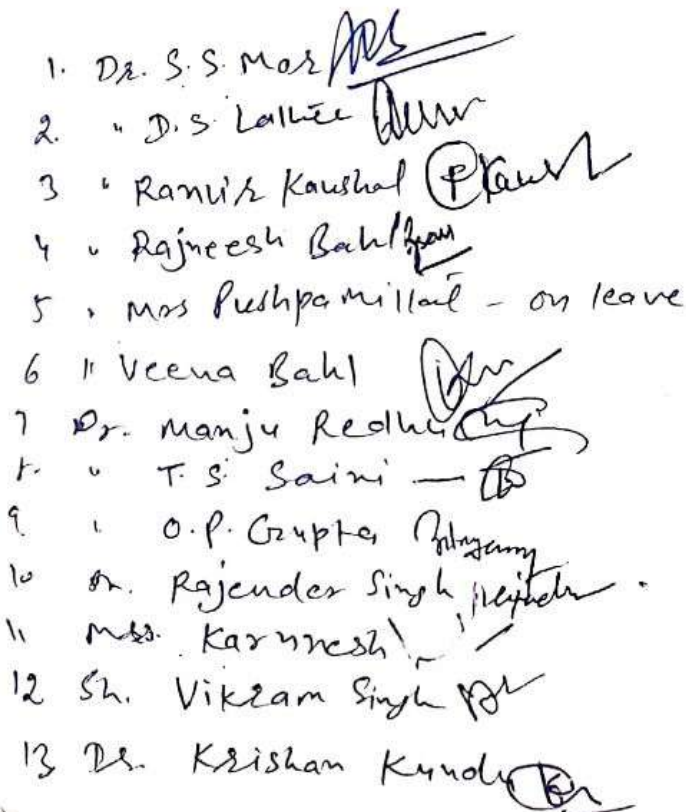 1. Dr. S. S. Mor
2. " D. S. Lallie
3 " Ranvir Kaushal P Kaush
4 " Rajneesh Bahl
5 " Mrs Pushpa - on leave
6 " Veena Bahl
7 Dr. Manju Redhu
8. " T. S. Saini —
9 " O. P. Gupta
10 Dr. Rajender Singh
11 Mrs. Karunesh
12 Sh. Vikram Singh
13 Dr. Krishan Kundu